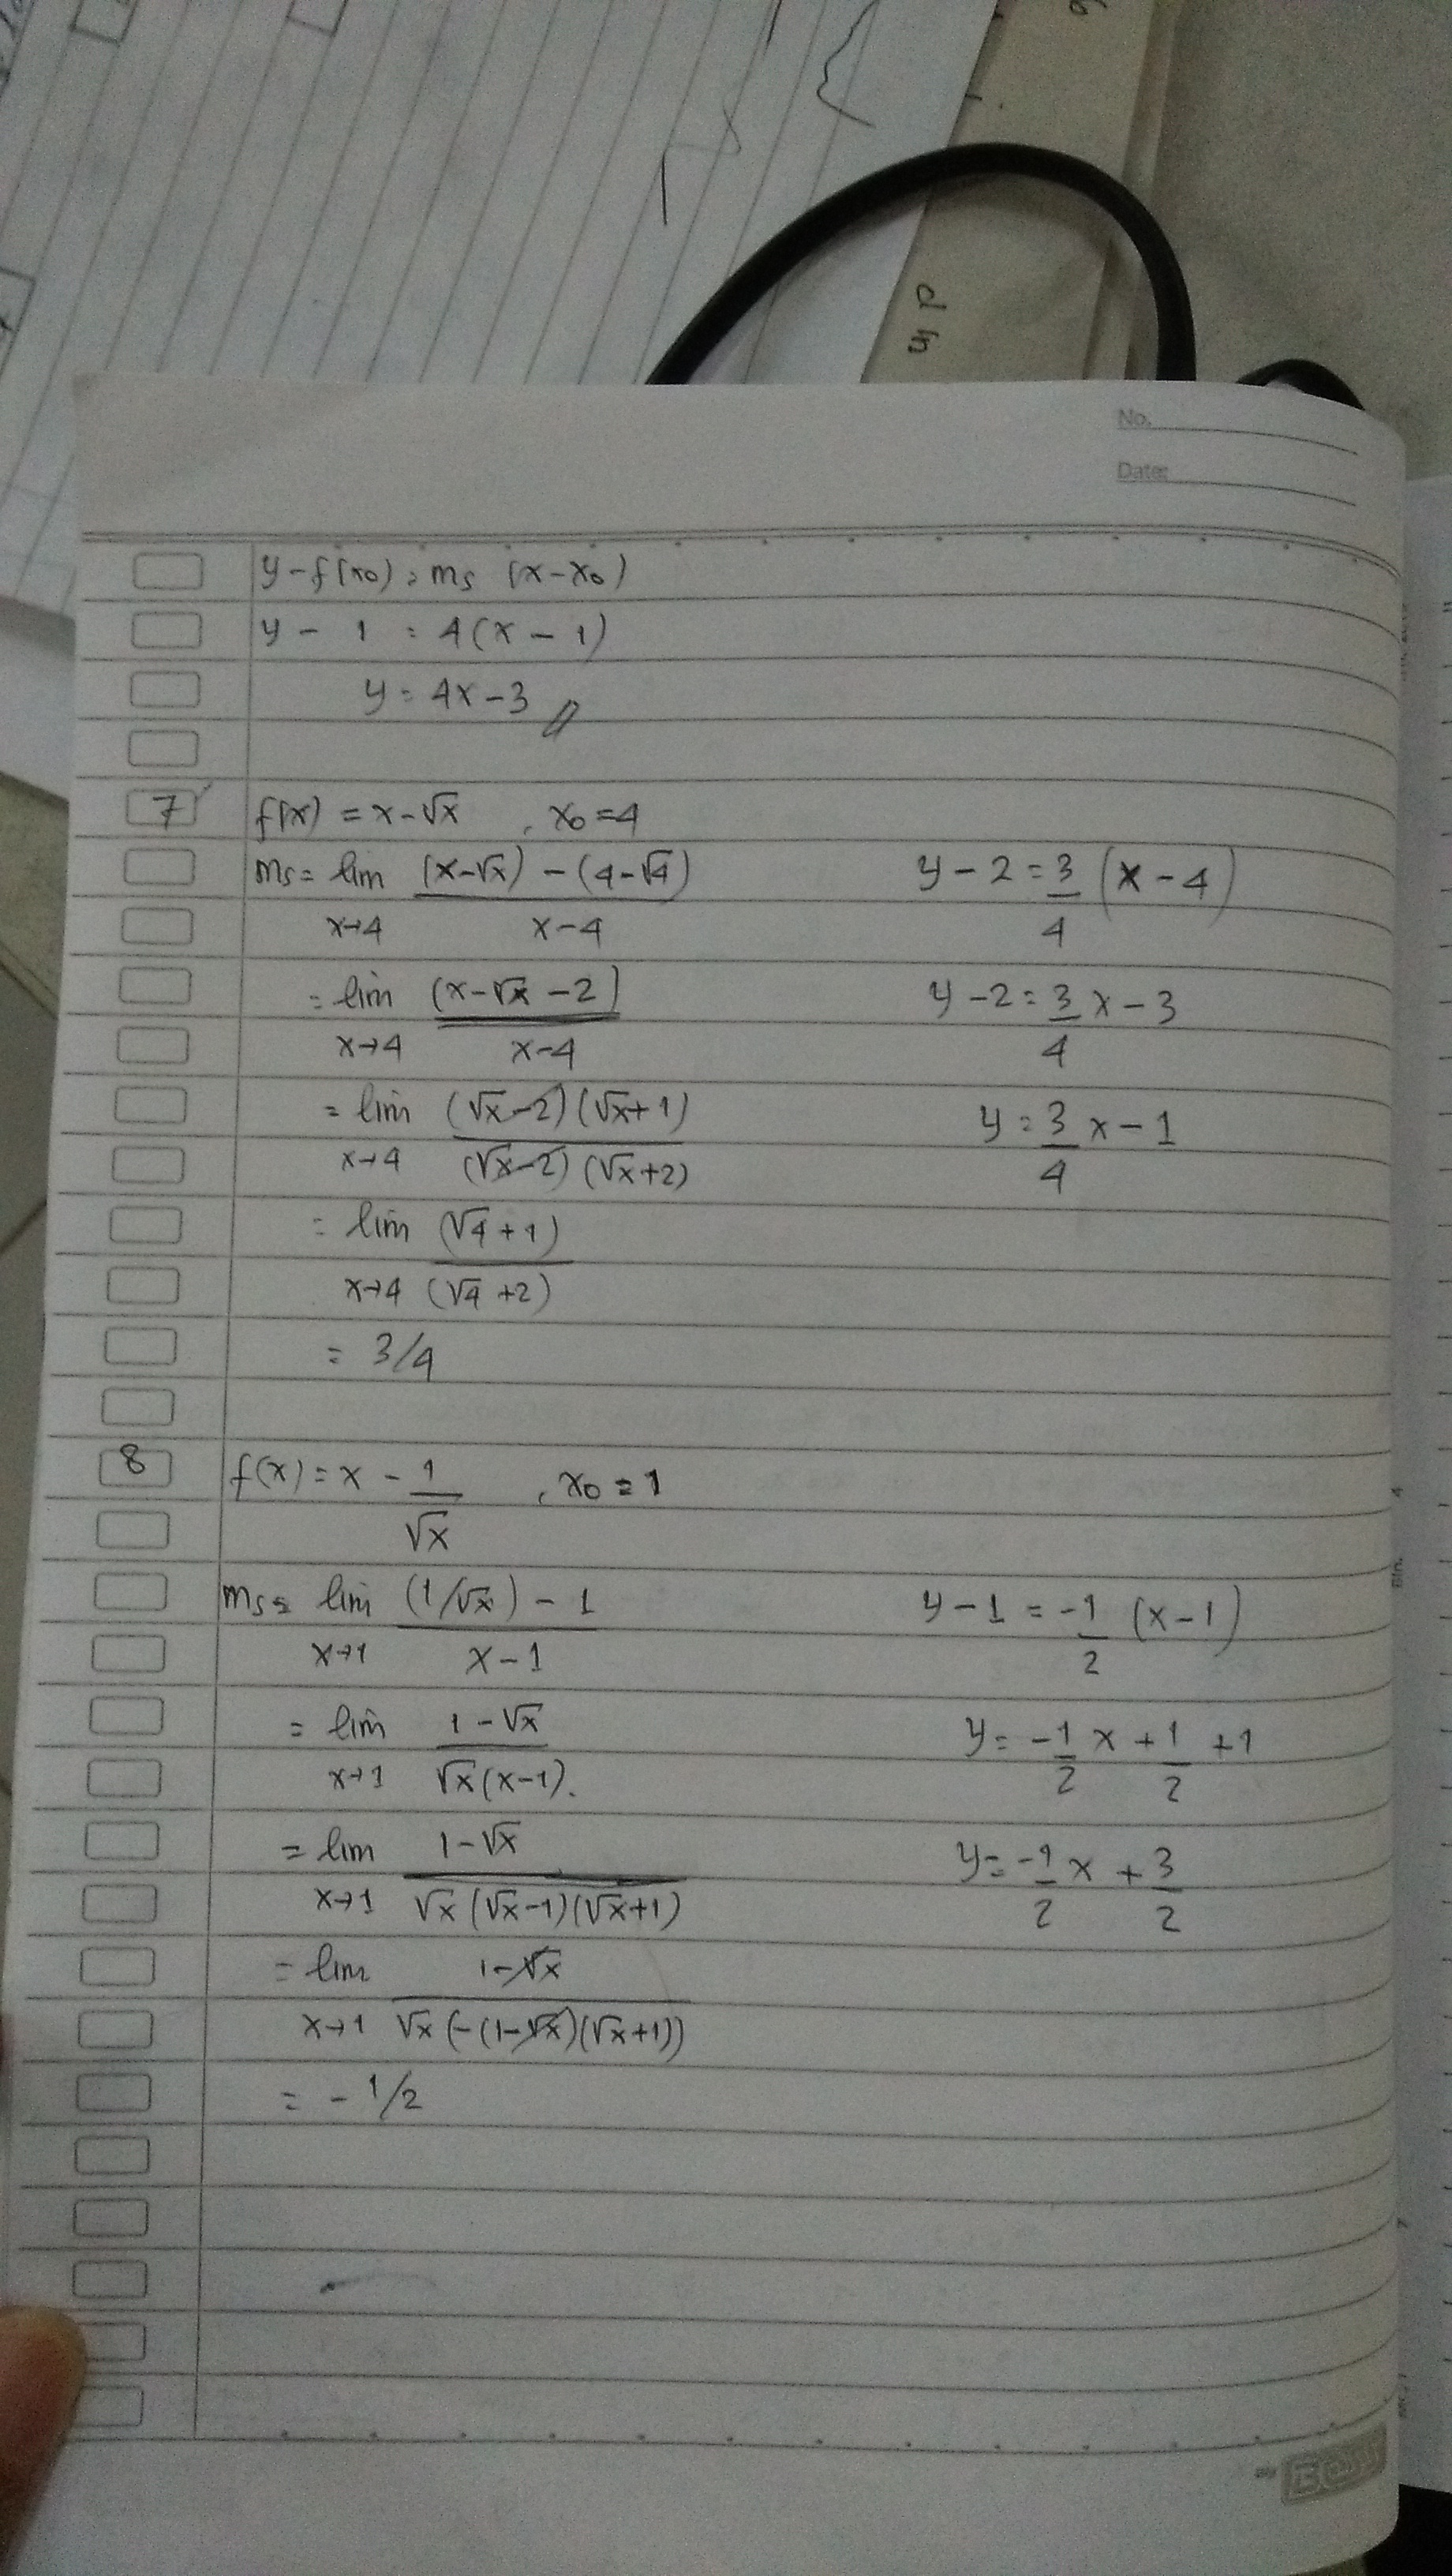 No.
Date:
y - f(x₀) = ms (x - x₀)
y - 1 = 4(x - 1)
y = 4x - 3 //
7 f(x) = x - √x , x₀ = 4
ms = lim x→4 ((x - √x) - (4 - √4)) / (x - 4)
= lim x→4 (x - √x - 2) / (x - 4)
= lim x→4 (√x - 2)(√x + 1) / (√x - 2)(√x + 2)
= lim x→4 (√4 + 1) / (√4 + 2)
= 3/4
y - 2 = 3/4 (x - 4)
y - 2 = 3/4 x - 3
y = 3/4 x - 1
8 f(x) = x - 1/√x , x₀ = 1
ms = lim x→1 ((1/√x) - 1) / (x - 1)
= lim x→1 (1 - √x) / √x(x - 1).
= lim x→1 (1 - √x) / √x(√x - 1)(√x + 1)
= lim x→1 (1 - √x) / √x(-(1 - √x)(√x + 1))
= - 1/2
y - 1 = -1/2 (x - 1)
y = -1/2 x + 1/2 + 1
y = -1/2 x + 3/2